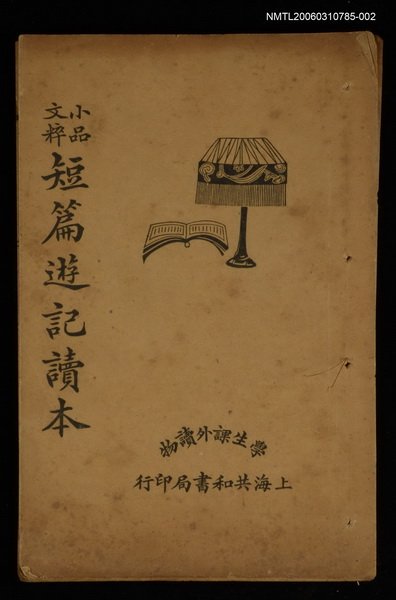 NMTL20060310785-002
小品文粹
短篇遊記讀本
學生課外讀物
上海共和書局印行